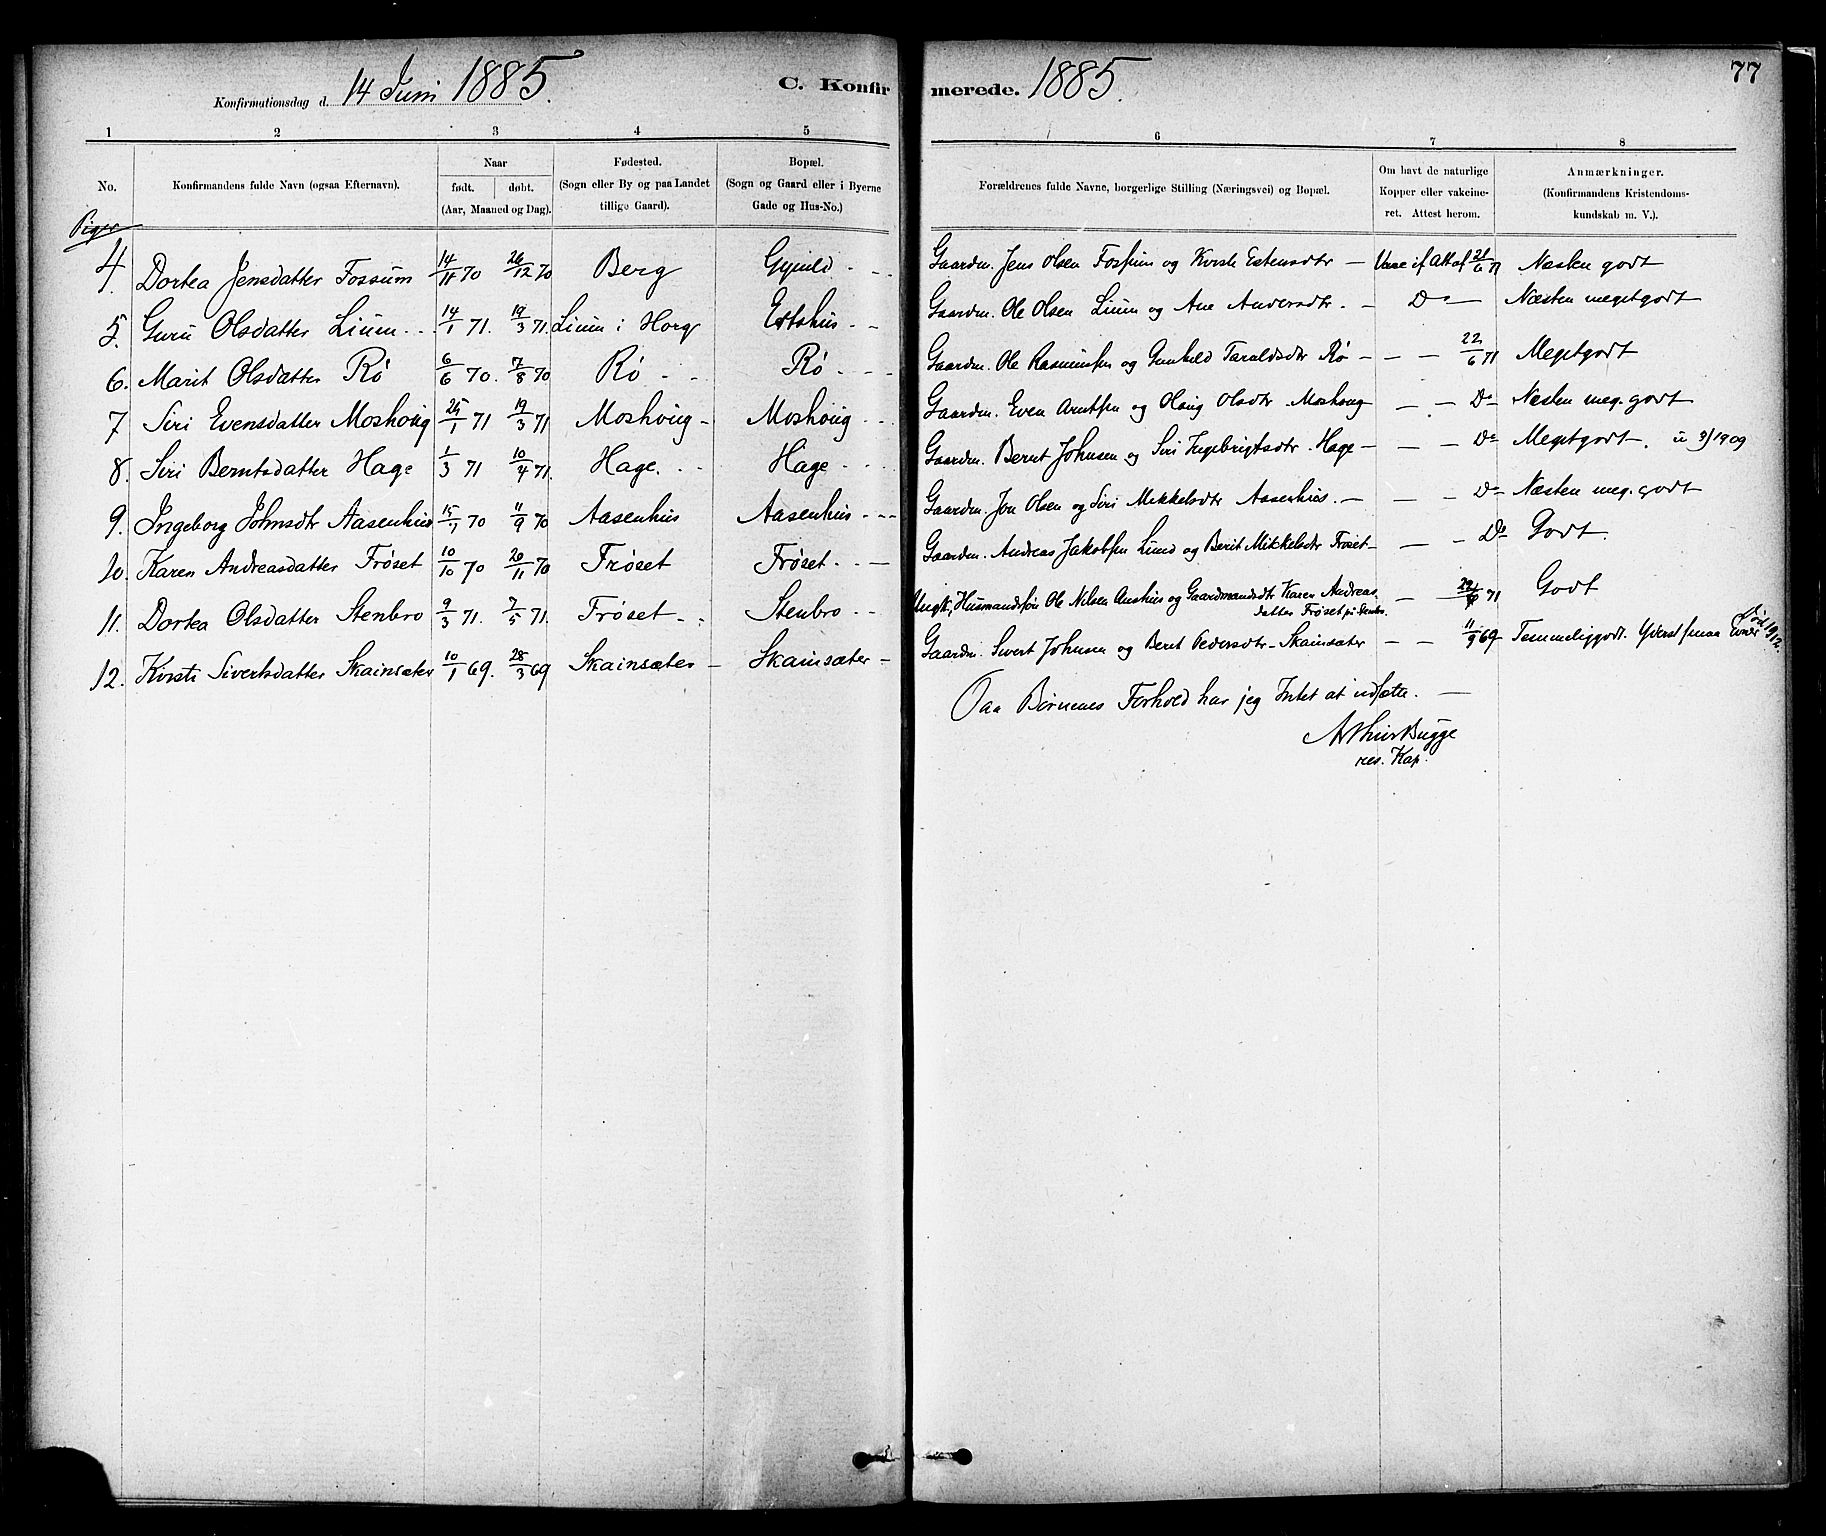 Konfirmationsdag d. 14 Juni 1885.
C. Konfirmerede. 1885.
77
1 2 3 4 5 6 7 8
No.
Konfirmandens fulde Navn (ogsaa Efternavn).
Naar
født. døbt.
(Aar, Maaned og Dag).
Fødested.
(Sogn eller By og paa Landet
tillige Gaard).
Bopæl.
(Sogn og Gaard eller i Byerne
Gade og Hus-No.)
Forældrenes fulde Navne, borgerlige Stilling (Næringsvei) og Bopæl.
Om havt de naturlige
Kopper eller vakcine-
ret. Attest herom.
Anmærkninger.
(Konfirmandens Kristendoms-
kundskab m. V.).
Piger
4. Dortea Jensdatter Fossum 14/11 70 26/12 70 Berg Gynild - - Gaardm. Jens Olsen Fossum og Kirsti Estensdtr — Vacc. if. Att. af 21/6 71 Næsten godt
5. Guru Olsdatter Lium 14/1 71. 19/3 71. Lium i Horg Estshus - - Gaardm. Ole Olsen Lium og Ane Andersdtr. — Do — Næsten megetgodt
6. Marit Olsdatter Rö 6/6 70. 7/8 70 Rö - - Rö - - - Gaardm. Ole Rasmussen og Gunhild Taraldsdtr Rö — — — 22/6 71 Megetgodt
7 Siri Evensdatter Moshoug 25/1 71 19/3 71 Moshoug - Moshoug - - - Gaardm. Even Arntsen og Olaug Olsdtr Moshoug — — Do Næsten meg. godt
8. Siri Berntsdatter Hage 1/3 71 10/4 71. Hage. - - Hage - - - Gaardm. Bernt Johnsen og Siri Ingebrigtsdtr. Hage — — — Do Megetgodt. u 3/1909
9. Ingeborg Johnsdtr Aasenhus 15/7 70 11/9 70 Aasenhus Aasenhus - - - Gaardm. Jon Olsen og Siri Mikkelsdtr Aasenhus. — — — Do Næsten meg. godt
10. Karen Andreasdatter Frøset 10/10 70 20/11 70 Frøset Frøset - - — Gaardm. Andreas Jakobsen Lund og Berit Mikkelsdtr Frøset — — - Do Godt.
11. Dortea Olsdatter Stenbro 9/3 71. 7/5 71. Frøset - - Stenbro - - Ungk. Husmandssøn Ole Nilsen Aushus og Gaardmandsdtr Karen Andreas-
datter Frøset på Stenbro. — 71 Godt
12. Kirsti Sivertsdatter Skainsæter 10/1 69. 28/3 69 Skainsæter — Skainsæter — Gaardm. Sivert Johnsen og Beret Pedersdtr Skainsæter — — 11/9 69 Temmeliggodt. Yderst smaa Evner
Paa Børnenes Forhold har jeg Intet at udsætte. —
Arthur Bugge
res. Kap.